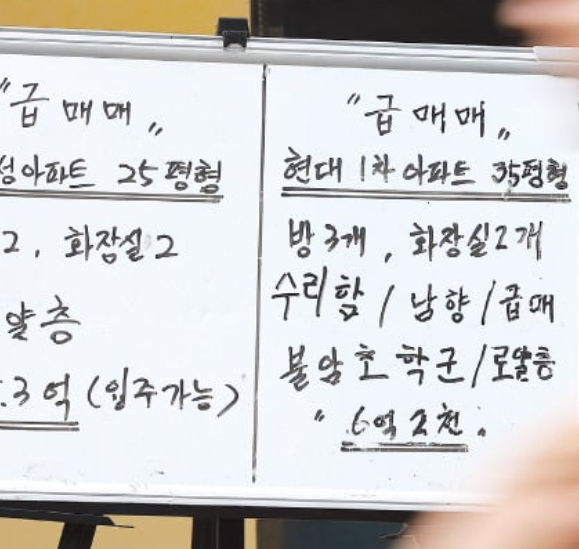 "급매매"
성아파트 25평형
2, 화장실 2
얄층
.3억 (입주가능)
"급매매"
현대 1차 아파트 35평형
방 3개, 화장실 2개
수리함 / 남향 / 급매
불암초 학군 / 로얄층
" 6억 2천.